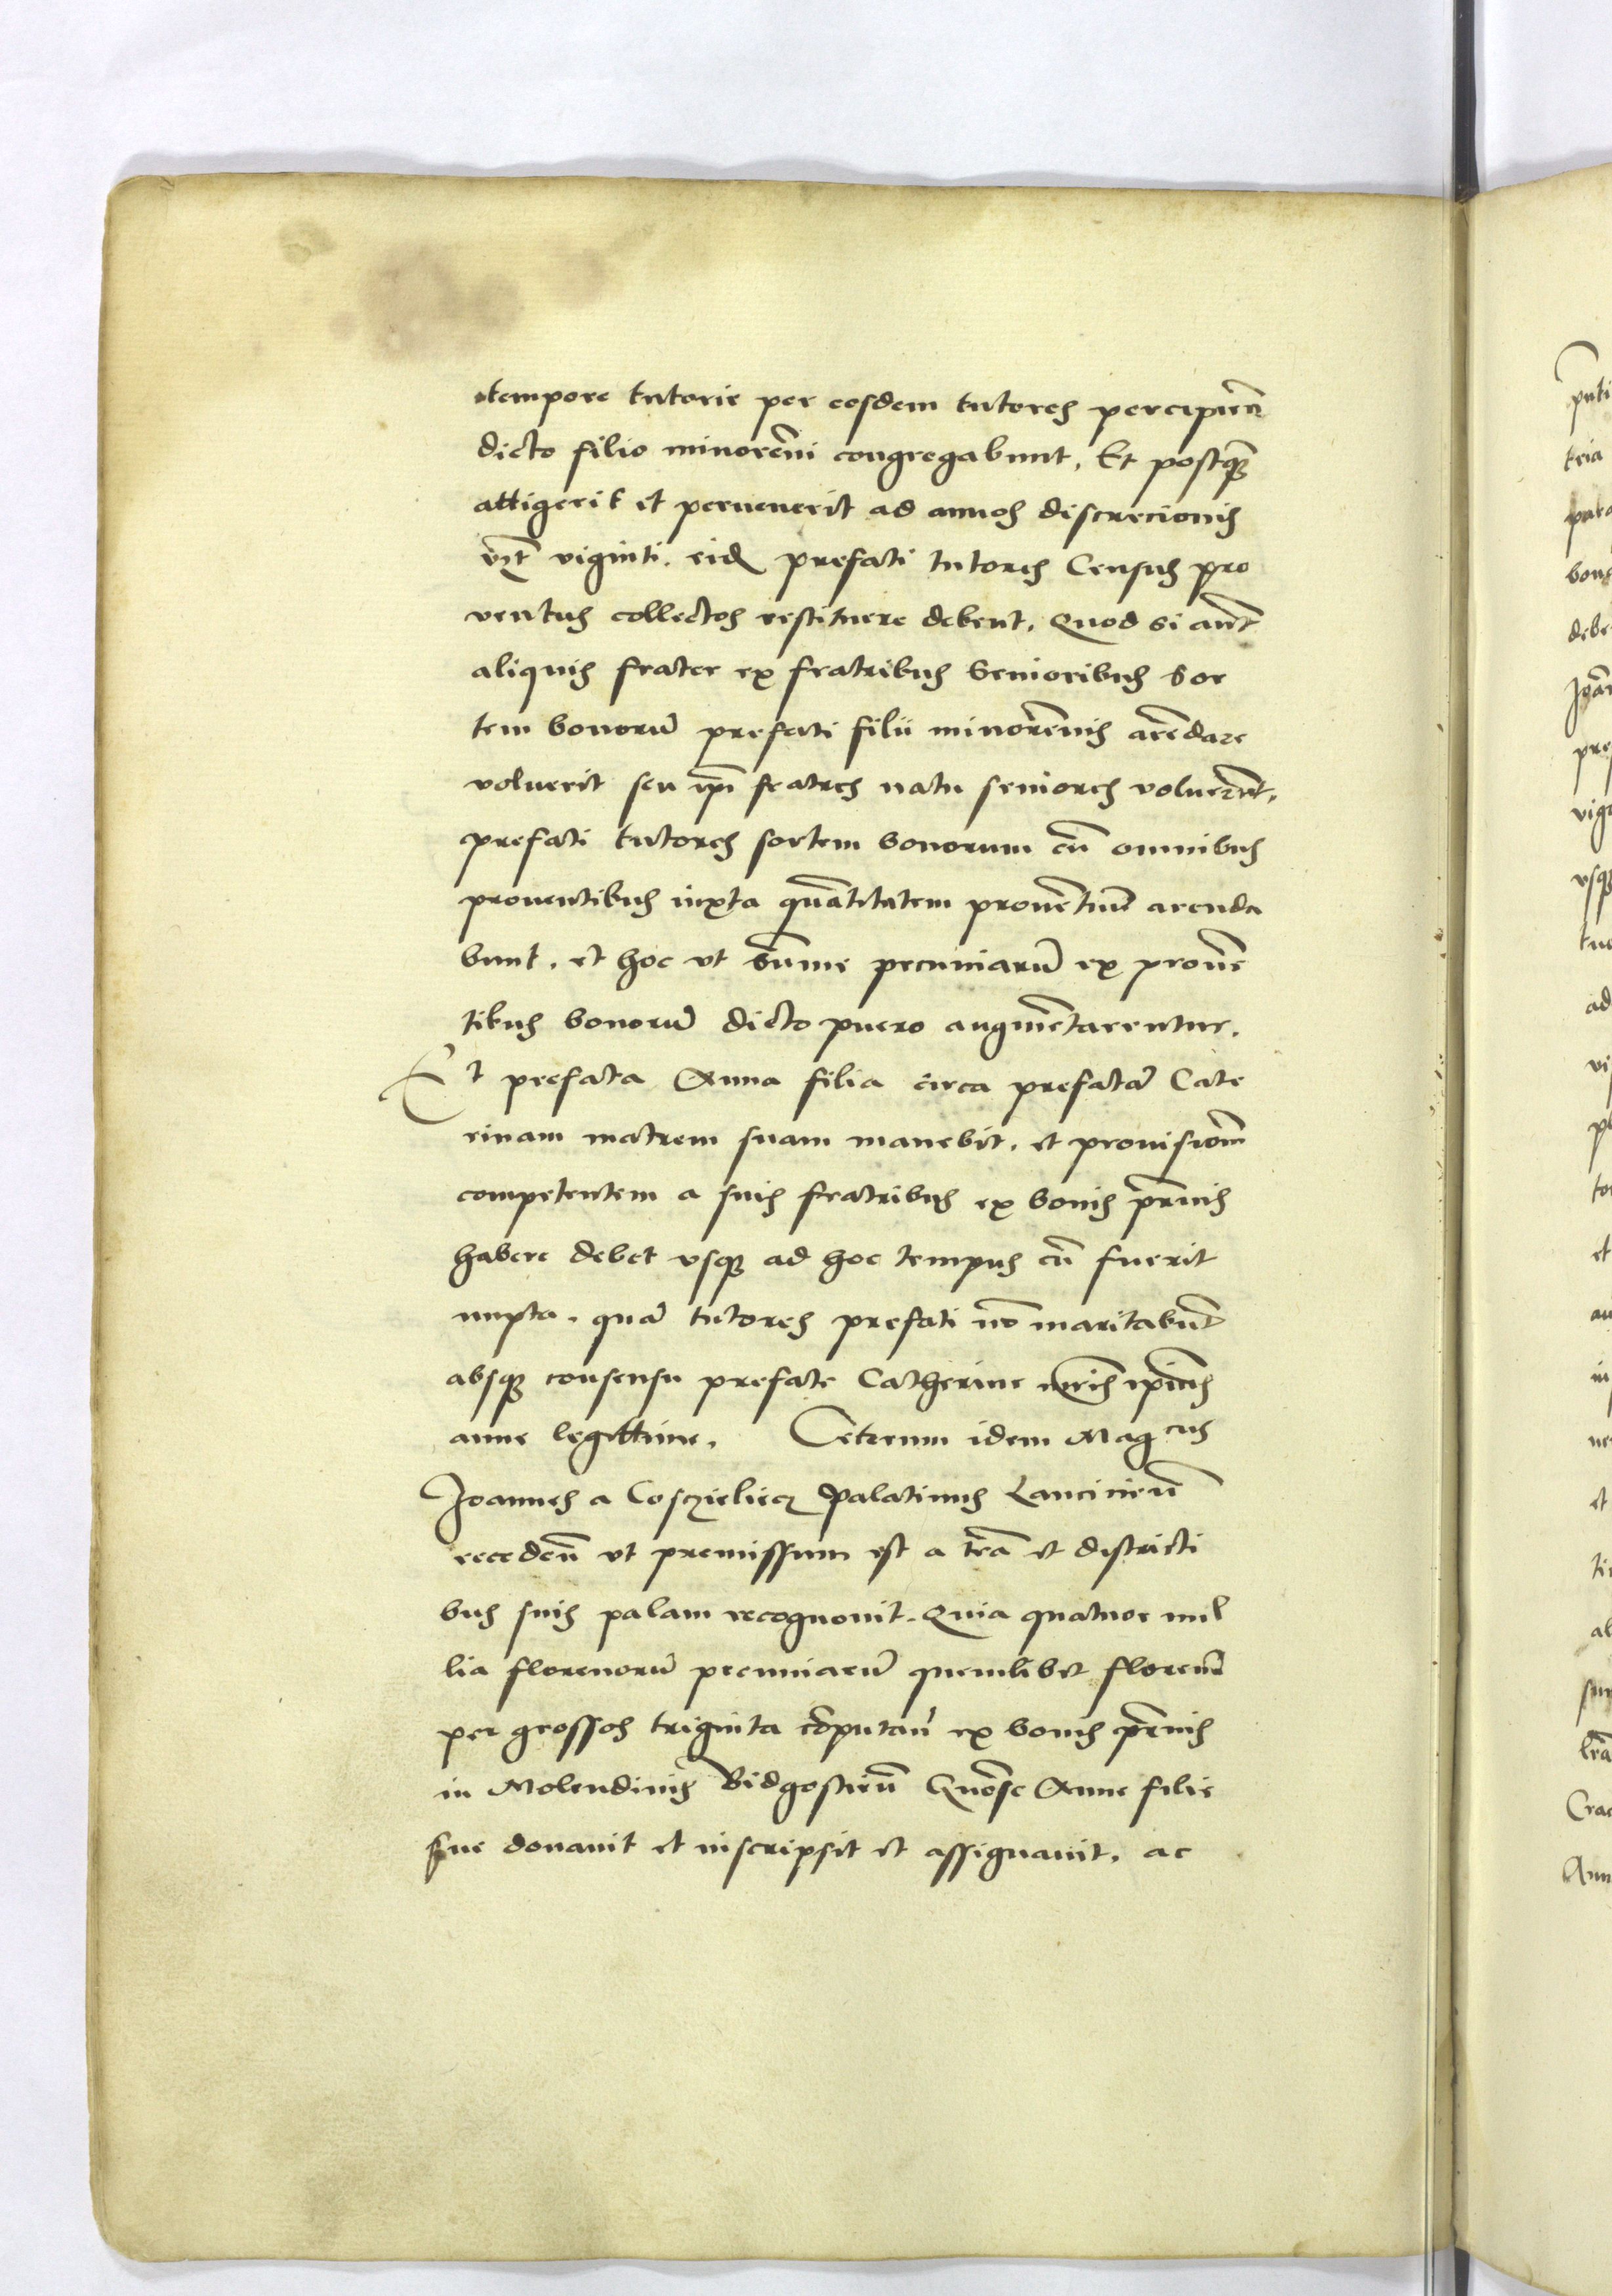 tempore tutorie per eosdem tutores percipień
dicto filio minorēni congregabunt, Et postq̄ꝫ
attigerit et peruenerit ad annos discrecionis
vꝫt viginti. eidē prefati tutores Census pro
ventus collectos restituere debent. Quod si aūt
aliquis frater ex fratribus Senioribus Sor
tem bonorū prefati filii minorēnis arēdare
voluerit seu ip̄i fratres natu seniores voluerīnt,
prefati tutores sortem bonorum cū omnibus
prouentibus iuxta quātitatem prouētuū arenda
bunt. et hoc vt sūme pecuniarū ex prouē
tibus bonorū dicto puero augmētarentur.
Et prefata Anna filia circa prefatā Cate
rinam matrem suam manebit. et prouisionē
competentem a suis fratribus ex bonis pr̄nis
habere debet vsqꝫ ad hoc tempus cū fuerit
nupta. quā tutores prefati nō maritabūt
absqꝫ consensu prefate Catherine mr̄is ip̄ius
anne legittime. Ceterum idem Mag cus
Joannes a Cosczieliecz Palatinus Lancicień
recedeń vt premissum est a tr̄a et districti
bus suis palam recognouit. Quia quatuor mil
lia florenorū pecuniarū quemlibet florenū
per grossos triginta cōputan̄ ex bonis pr̄nis
in Molendinis Bidgostień Gnōse Anne filie
sue donauit et inscripsit et assignauit. ac
puti
tria
pata
bons
debe
Joan
pre
vigi
vsqꝫ
tuo
ad
vi
et
in
et
ti
al
sun
Crac
Ann